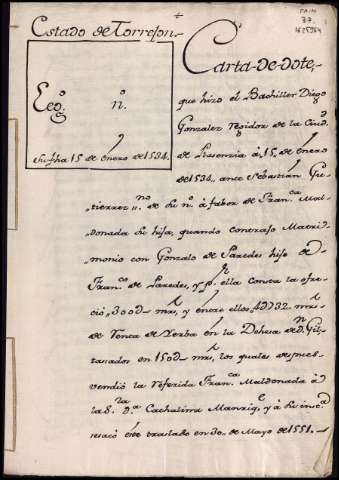 Estado de Torrejon.
Leg.º n.º
Su fha 15 de enero de 1534.
Carta-de-dote,
que hizo el Bachiller Diego
Gonzalez Regidor de la Ciud.
de Plasenzia à 15. de enero
de 1534. ante Sebastian Gu-
tierrez ss.no de su n.º à fabor de Fran.ca Mal-
donada su hija, quando contrajo Matri-
monio con Gonzalo de Paredes hijo de
Fran.co de Paredes, y p.r ella consta la ofre-
ció, 300d mrs, y entre ellos, 4d732. mrs
de Renta de Yerba en la Dehesa de
tasados en 150d mrs, los quales despues
vendió la referida Fran.ca Maldonada à
la S.ra D.a Cathalina Manriq.e, y à su inst.a
se sacó este traslado en 30. de Mayo de 1551.